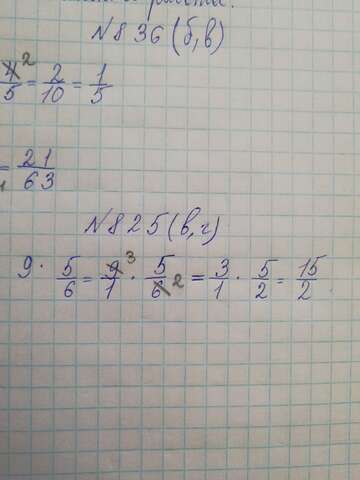 работа.
№836(б,в)
4/5 2 = 2/10 = 1/5
= 21/63
№825(в,г)
9 · 5/6 = 9/1 3 · 5/6 2 = 3/1 · 5/2 = 15/2